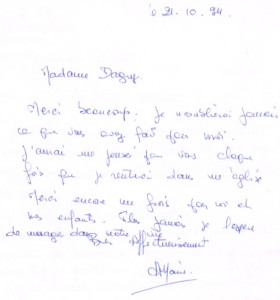 21.10.94
Madame Daguy.
Merci beaucoup. Je n'oublierai jamais
ce que vous avez fait pour moi.
J'aurai une pensée pour vous chaque
fois que je rentrerai dans une église
Merci encore une fois pour moi et
mes enfants. Plus jamais je
de dans notre
affectueusement